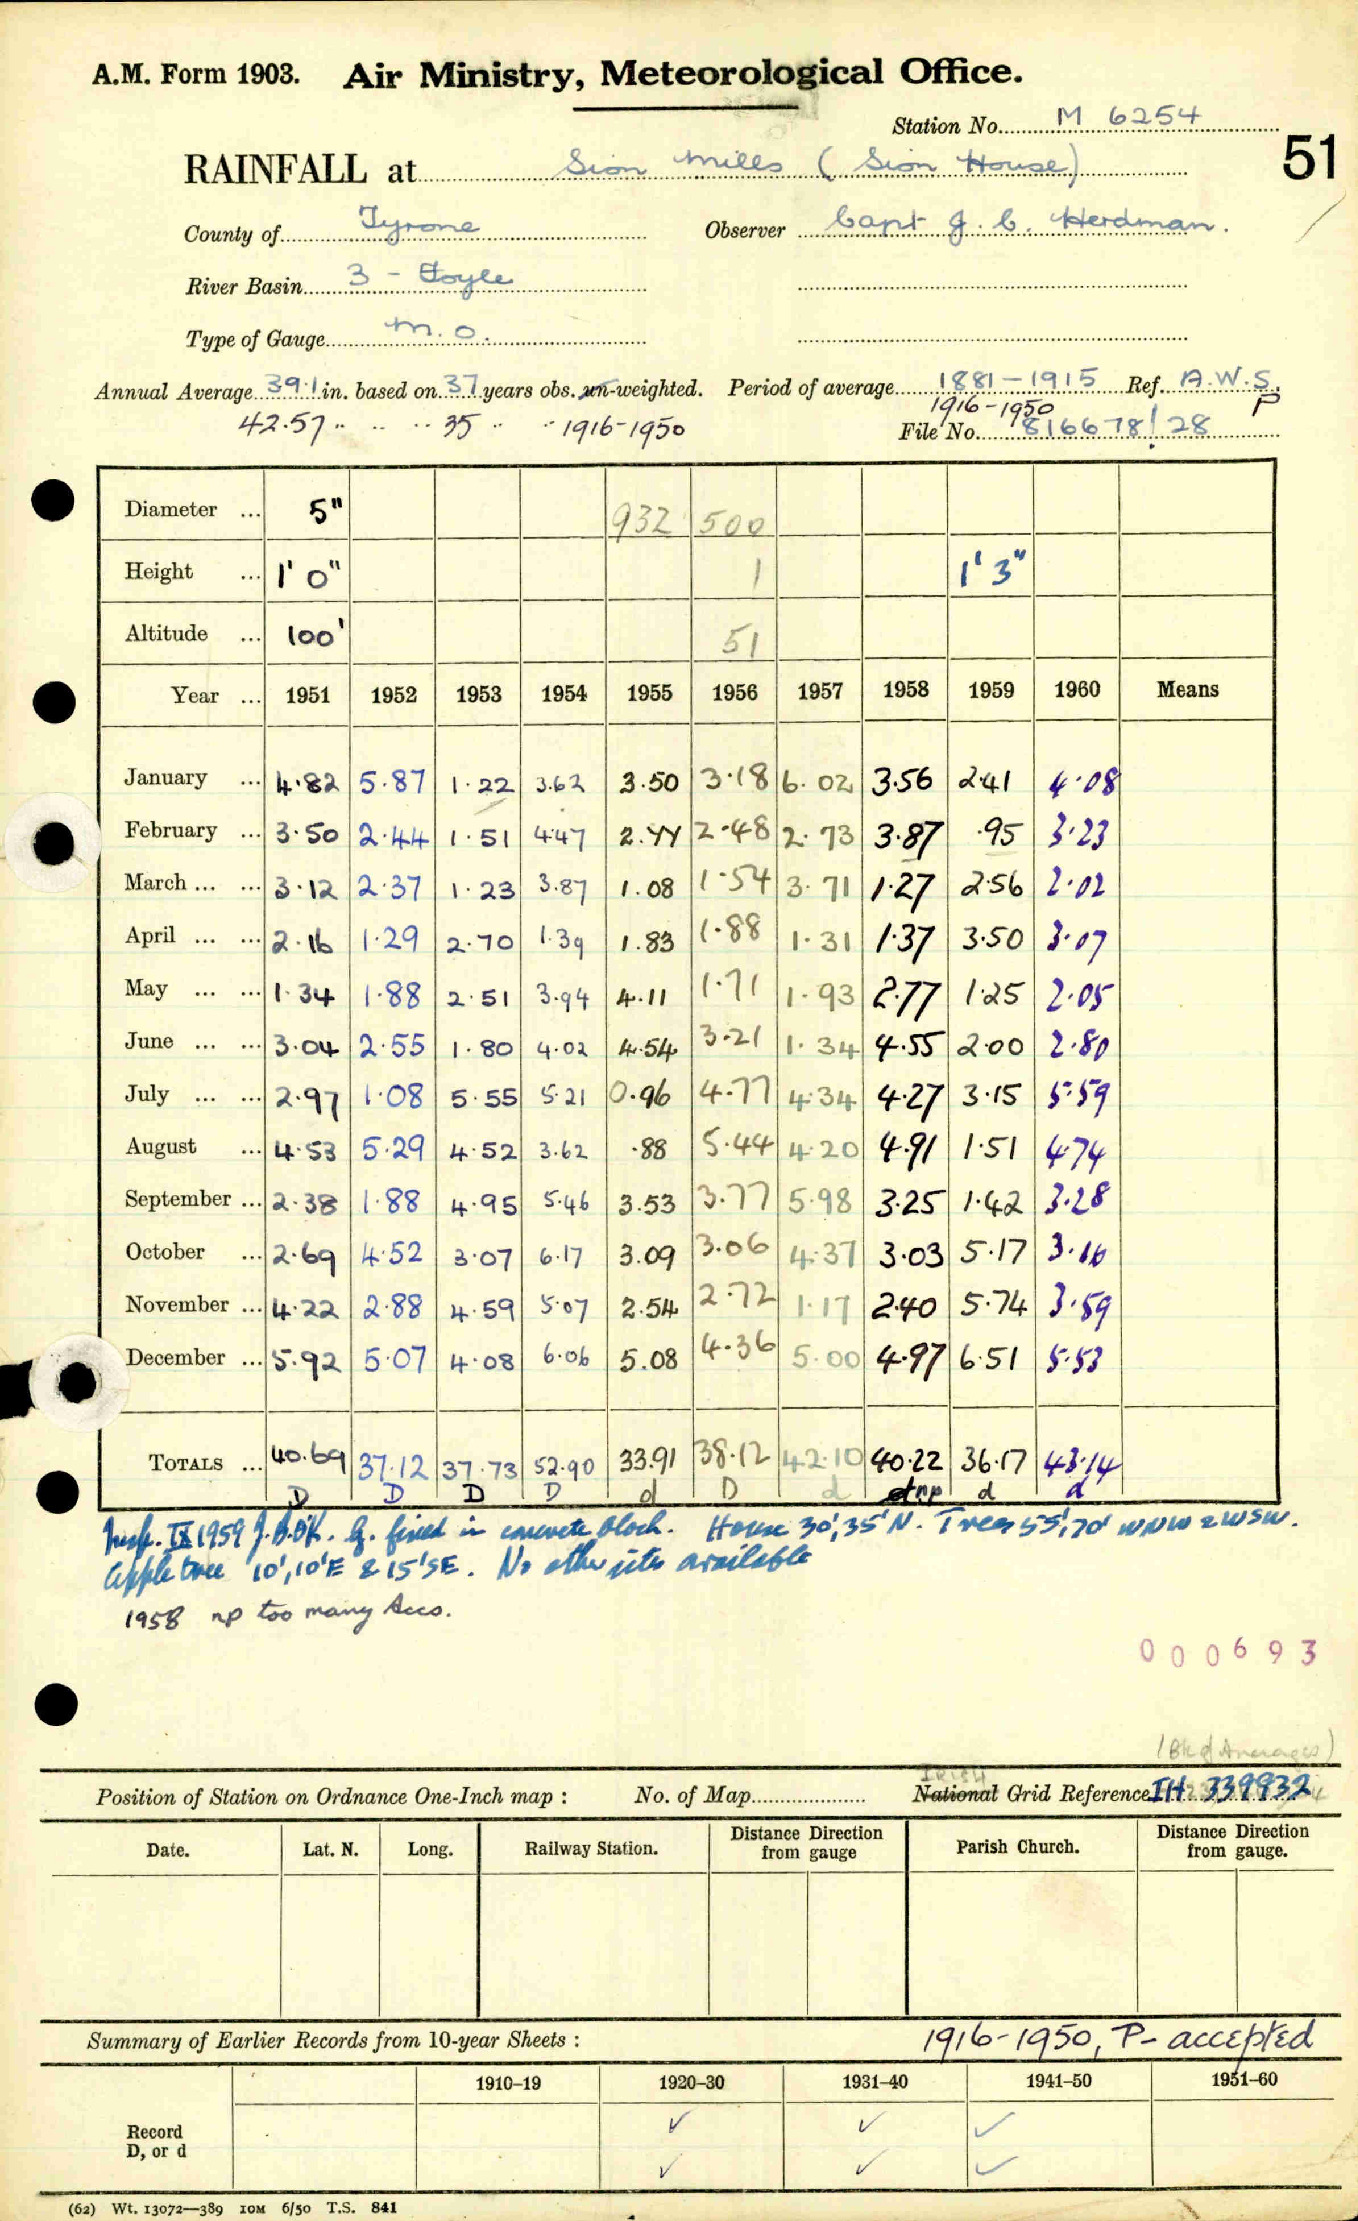 A.M. Form 1903. Air Ministry, Meteorological Office.
Station No. M 6254
51
RAINFALL at Sion Mills (Sion House)
County of Tyrone Observer Capt J. C. Herdman.
River Basin 3 - Foyle
Type of Gauge M.O.
Annual Average 39.1 in. based on 37 years obs. un-weighted. Period of average 1881-1915 Ref. A.W.S.
1916-1950 P
42.57 " " " 35 " " 1916-1950 File No. 816678/28
Diameter ... 5" 932 500
Height ... 1' 0" 1 1' 3"
Altitude ... 100' 51
Year ... 1951 1952 1953 1954 1955 1956 1957 1958 1959 1960 Means
January ... 4.82 5.87 1.22 3.62 3.50 3.18 6.02 3.56 2.41 4.08
February ... 3.50 2.44 1.51 4.47 2.77 2.48 2.73 3.87 .95 3.23
March ... ... 3.12 2.37 1.23 3.87 1.08 1.54 3.71 1.27 2.56 2.02
April ... ... 2.16 1.29 2.70 1.39 1.83 1.88 1.31 1.37 3.50 3.07
May ... ... 1.34 1.88 2.51 3.94 4.11 1.71 1.93 2.77 1.25 2.05
June ... ... 3.04 2.55 1.80 4.02 4.54 3.21 1.34 4.55 2.00 2.80
July ... ... 2.97 1.08 5.55 5.21 0.96 4.77 4.34 4.27 3.15 5.59
August ... 4.53 5.29 4.52 3.62 .88 5.44 4.20 4.91 1.51 4.74
September ... 2.38 1.88 4.95 5.46 3.53 3.77 5.98 3.25 1.42 3.28
October ... 2.69 4.52 3.07 6.17 3.09 3.06 4.37 3.03 5.17 3.16
November ... 4.22 2.88 4.59 5.07 2.54 2.72 1.17 2.40 5.74 3.59
December ... 5.92 5.07 4.08 6.06 5.08 4.36 5.00 4.97 6.51 5.53
TOTALS ... 40.69 37.12 37.73 52.90 33.91 38.12 42.10 40.22 36.17 43.14
D D D D d D d d np d d
Insp. IX 1959 J.B.O'K. G. fixed in concrete block. House 30', 35' N. Trees 55', 70' WNW & WSW.
Apple tree 10', 10'E & 15'SE. No other site available
1958 np too many Accs.
000693
(Bk of Averages)
IRISH
Position of Station on Ordnance One-Inch map : No. of Map National Grid Reference IH 339932
Date. Lat. N. Long. Railway Station. Distance from Direction gauge Parish Church. Distance from Direction gauge.
Summary of Earlier Records from 10-year Sheets : 1916-1950, P- accepted
1910–19 1920–30 1931–40 1941–50 1951–60
Record ✓ ✓ ✓
D, or d ✓ ✓ ✓
(62) Wt. 13072—389 10M 6/50 T.S. 841